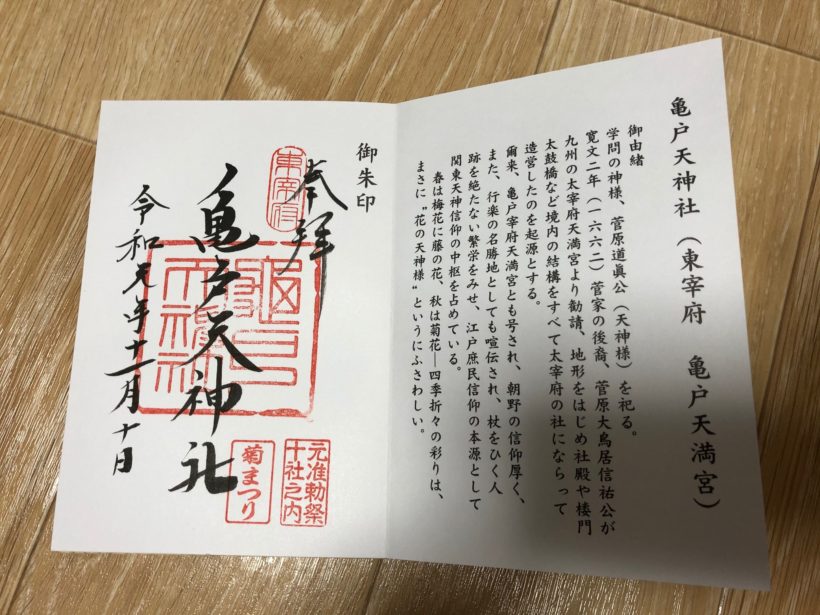 亀戸天神社(東宰府 亀戸天満宮)
御由緒
学問の神様、菅原道眞公(天神様)を祀る。
寛文二年(一六六二)菅家の後裔、菅原大鳥居信祐公が
九州の太宰府天満宮より勧請、地形をはじめ社殿や楼門
太鼓橋など境内の結構をすべて太宰府の社にならって
造営したのを起源とする。
爾来、亀戸宰府天満宮とも号され、朝野の信仰厚く、
また、行楽の名勝地としても喧伝され、杖をひく人
跡を絶たない繁栄をみせ、江戸庶民信仰の本源として
関東天神信仰の中枢を占めている。
春は梅花に藤の花、秋は菊花―四季折々の彩りは、
まさに〝花の天神様〟というにふさわしい。
御朱印
奉拝
東宰府
亀戸天神社
亀戸
天神社
令和元年十一月十日
元准勅祭
十社之内
菊まつり